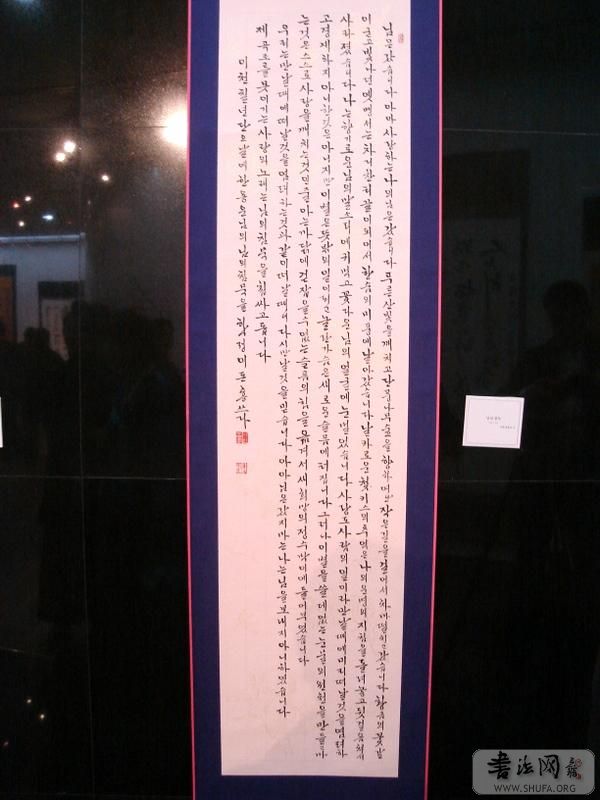 님은갔습니다 아아 사랑하는나의님은갔습니다 푸른산빛을깨치고단풍나무숲을향하여난작은길을걸어서차마떨치고갔습니다 황금의꽃같
이굳고빛나던옛맹서는차디찬티끌이되어서한숨의미풍에날아갔습니다날카로운첫키스의추억은나의운명의지침을돌려놓고뒷걸음쳐서
사라졌습니다 나는향기로운님의말소리에귀먹고꽃다운님의얼굴에눈멀었습니다 사랑도사람의일이라만날때에미리떠날것을염려하
고경계하지아니한것은아니지만이별은뜻밖의일이되고놀란가슴은새로운슬픔에터집니다 그러나이별을쓸데없는눈물의원천을만들고마
는것은스스로사랑을깨치는것인줄아는까닭에걷잡을수없는슬픔의힘을옮겨서새희망의정수박이에들어부었습니다
우리는만날때에떠날것을염려하는것과같이떠날때에다시만날것을믿습니다 아아님은갔지마는나는님을보내지아니하였습니다
제곡조를못이기는사랑의노래는님의침묵을휩싸고돕니다
이천칠년단오날에한용운님의님의침묵을학정이돈흥쓰다
书法网
WWW.SHUFA.ORG